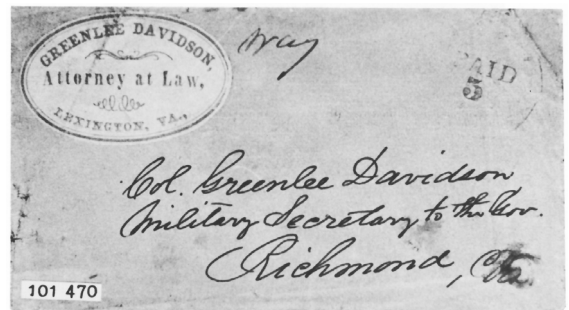 GREENLEE DAVIDSON,
Attorney at Law,
LEXINGTON, VA.,
Way
PAID
5
Col. Greenlee Davidson
Military Secretary to the Gov.
Richmond, Va.
101 470